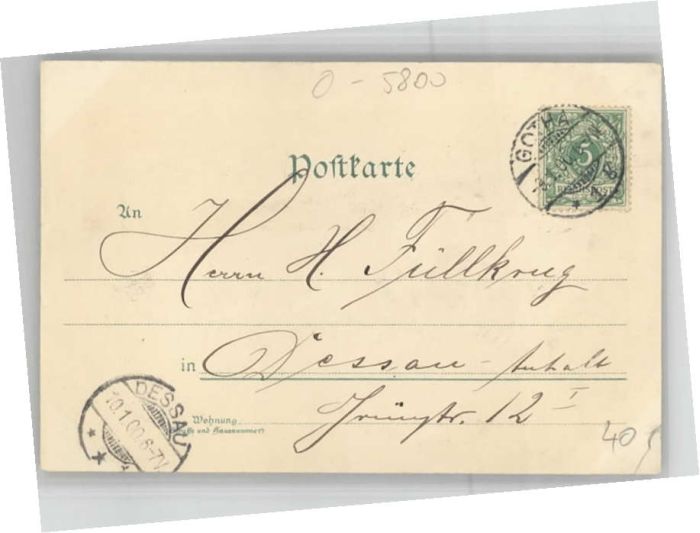 O - 5800
GOTHA
5
REICHSPOST
Postkarte
An
Herrn H. Füllkrug
in Dessau - Anhalt
Wohnung
(Straße und Hausnummer)
12 I
DESSAU
10.1.00.6-7V.
40